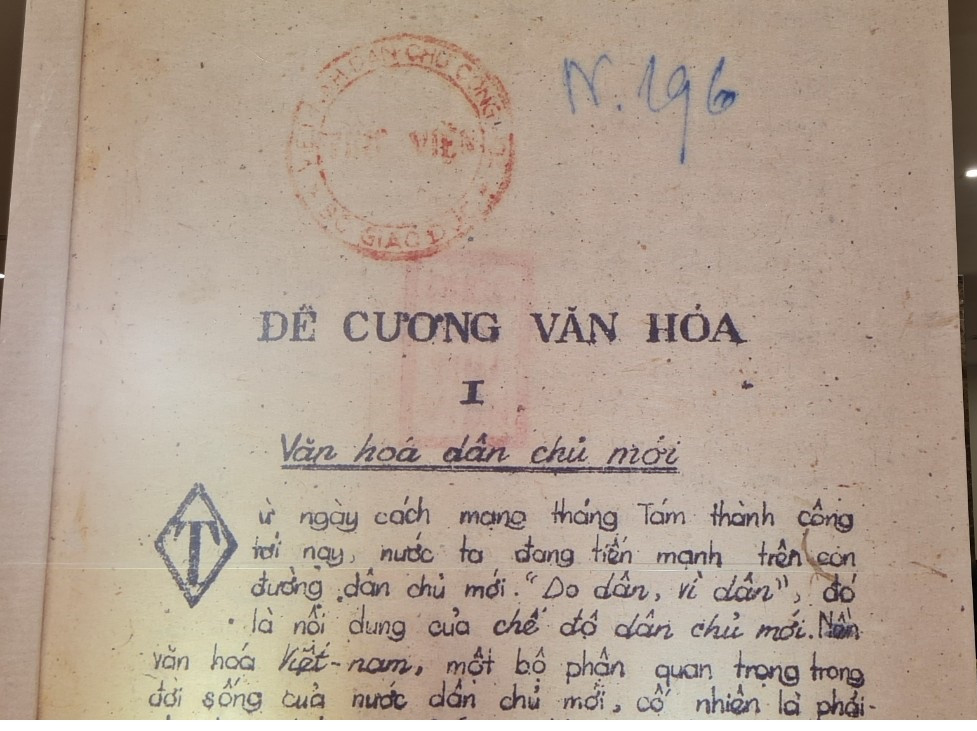 DÂN CHỦ CỘNG
VIỆN
GIÁO
N. 196
ĐỀ CƯƠNG VĂN HÓA
I
Văn hoá dân chủ mới
Từ ngày cách mạng tháng Tám thành công
tới nay, nước ta đang tiến mạnh trên con
đường dân chủ mới. "Do dân, vì dân", đó
là nội dung của chế độ dân chủ mới. Nền
văn hoá Việt-nam, một bộ phận quan trọng trong
đời sống cuả nước dân chủ mới, cố nhiên là phải-